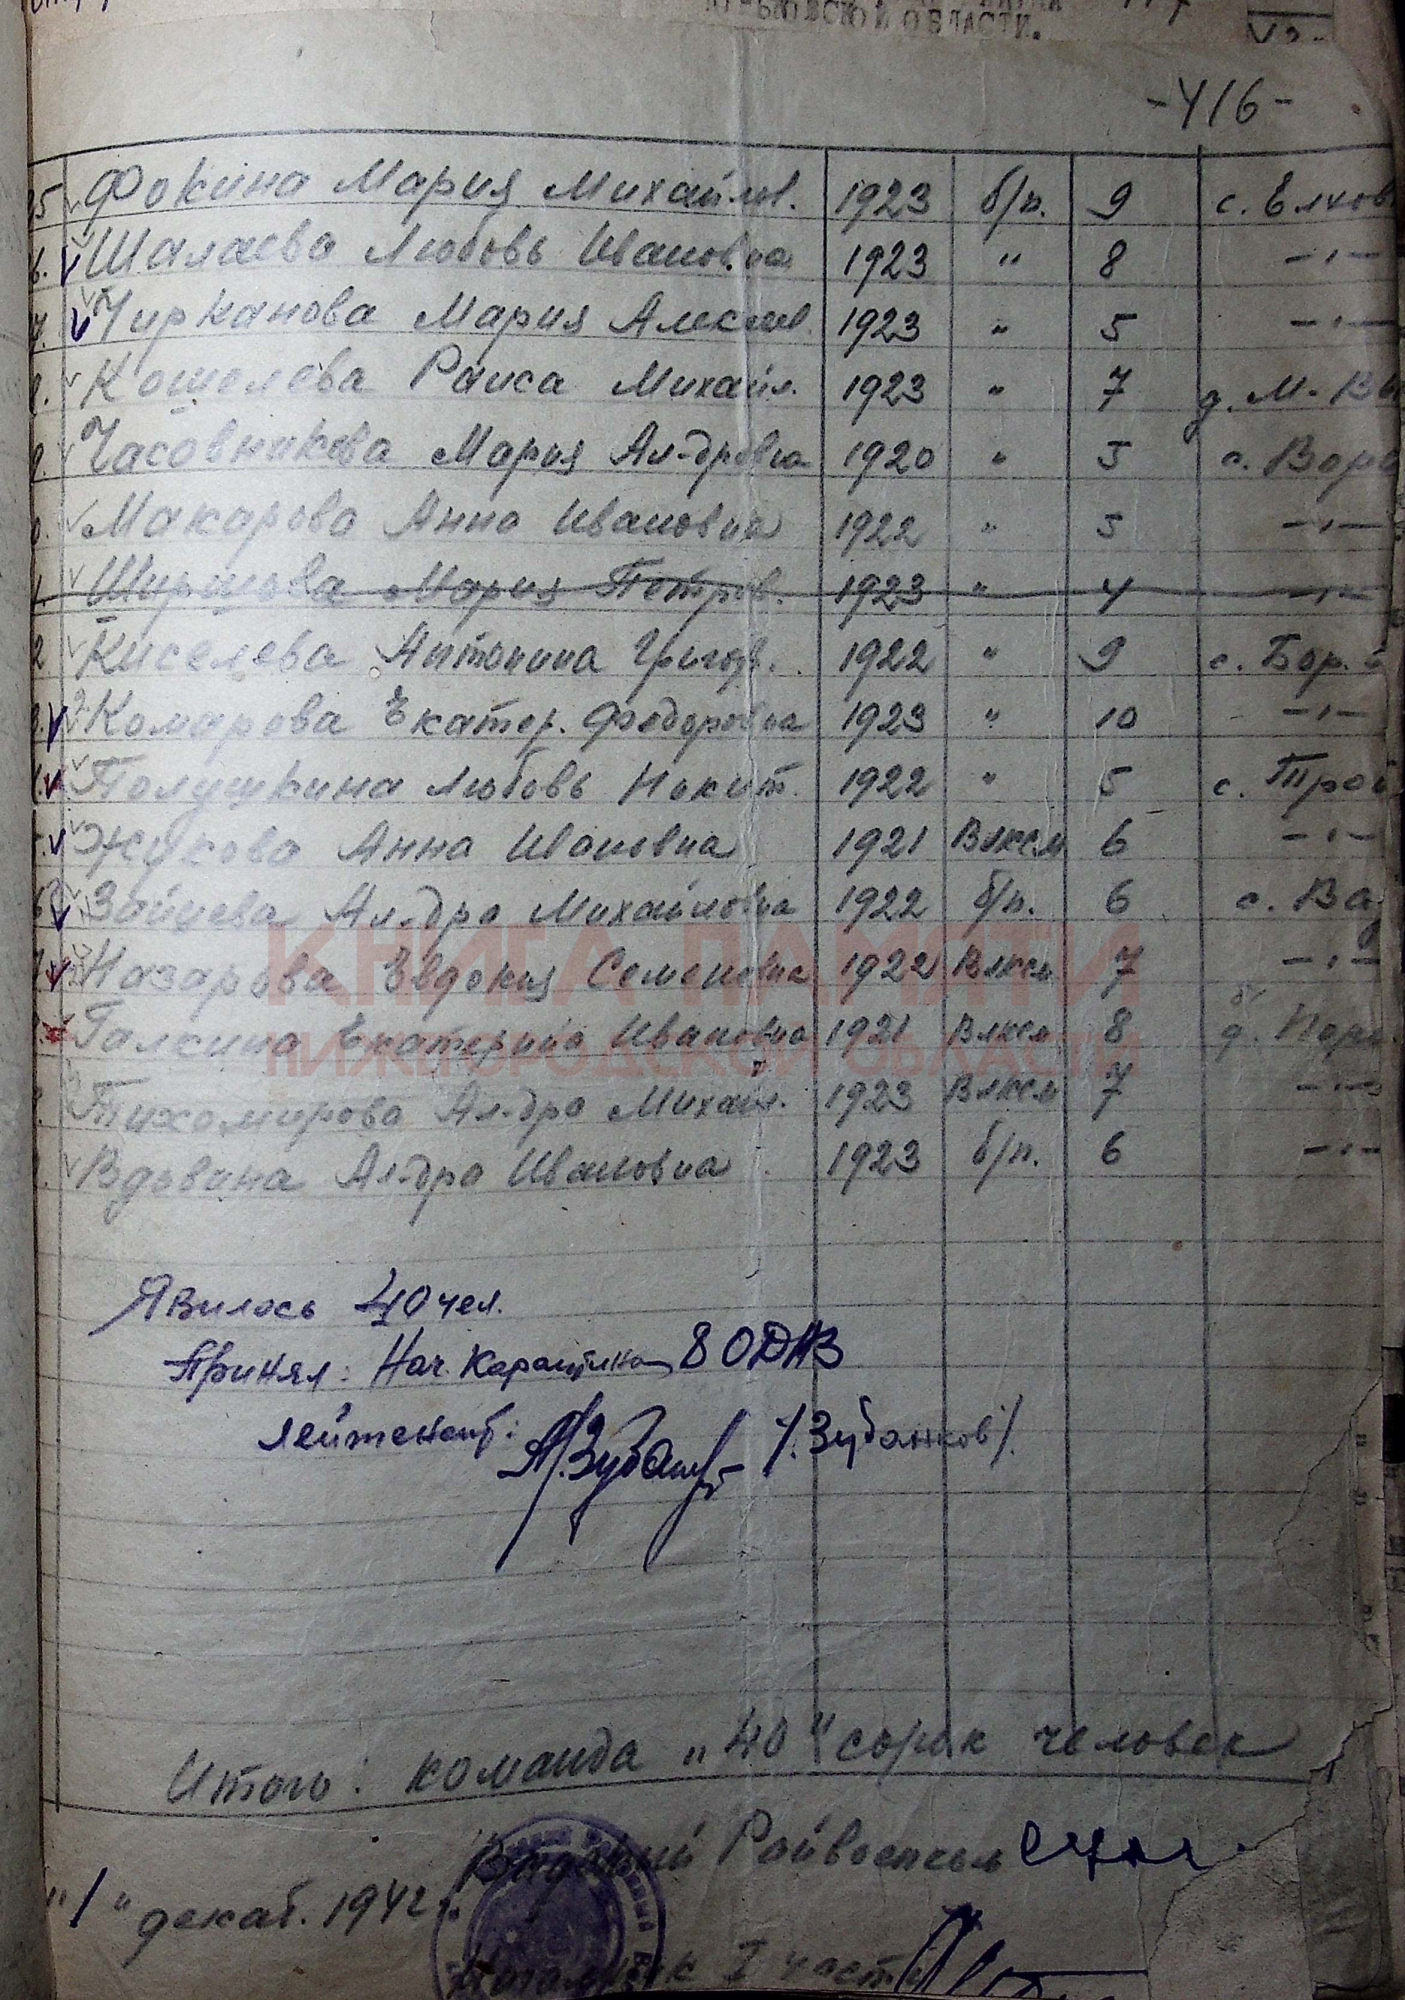 ОБЛАСТИ.
-416-
Фокина Мария Михайлов. 1923 б/п. 9 с. Елков
Шалаева Любовь Ивановна 1923 " 8 -"-
Чирканова Мария Алексеев. 1923 " 5 -"-
Кошелева Раиса Михайл. 1923 " 7 д. М-Вы
Часовникова Мария Ал-дровна 1920 " 5 с. Воро
Макарова Анна Ивановна 1922 " 5 -"-
Ширшова Мария Петров. 1923 " 4 -"-
2 Киселева Антонина Григор. 1922 " 9 с. Бор.
Комарова Екатер. Федоровна 1923 " 10 -"-
Полушкина Любовь Никит. 1922 " 5 с. Трой
Жукова Анна Ивановна 1921 Влксм 6 -"-
Зайцева Ал-дра Михайловна 1922 б/п. 6 с. Ва
Назарова Евдокия Семеновна 1922 Влксм 7 -"-
КНИГА ПАМЯТИ
Галкина Екатерина Ивановна 1921 Влксм 8 д.
НИЖГОРОДСКОЙ ОБЛАСТИ
Тихомирова Ал-дра Михайл. 1923 Влксм 7 -"-
Вдовина Ал-дра Ивановна 1923 б/п. 6 -"-
Явилось 40 чел.
Принял: Нач. Карантина 80ДАЗ
лейтенант: /Зубанков/.
Итого: команда „40" сорок человек
Райвоенком
"1" декаб. 1942 г.
Начальник I части